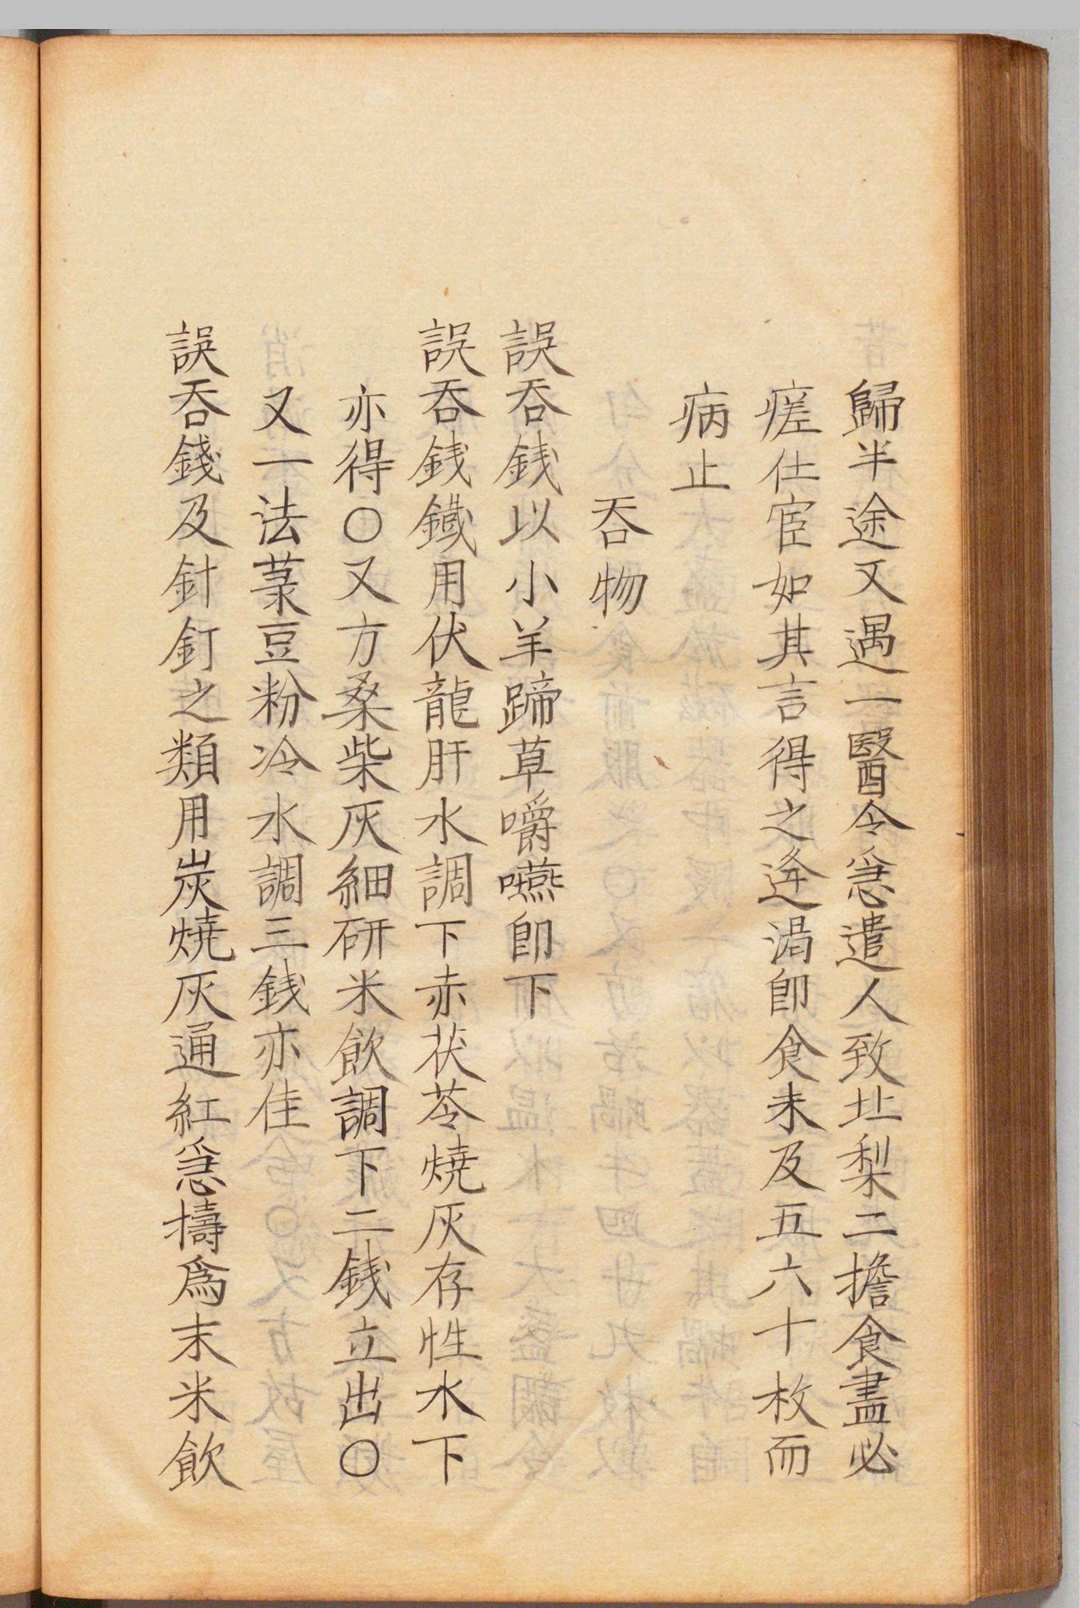 歸半途又遇一醫令急遣人致北梨二擔食盡必
瘥仕宦如其言得之逢渴即食未及五六十枚而
病止
吞物
誤吞錢以小羊蹄草嚼嚥即下
誤吞錢鐵用伏龍肝水調下赤茯苓燒灰存性水下
亦得〇又方桑柴灰細研米飲調下二錢立出〇
又一法菉豆粉冷水調三錢亦佳
誤吞錢及針釘之類用炭燒灰通紅急擣為末米飲